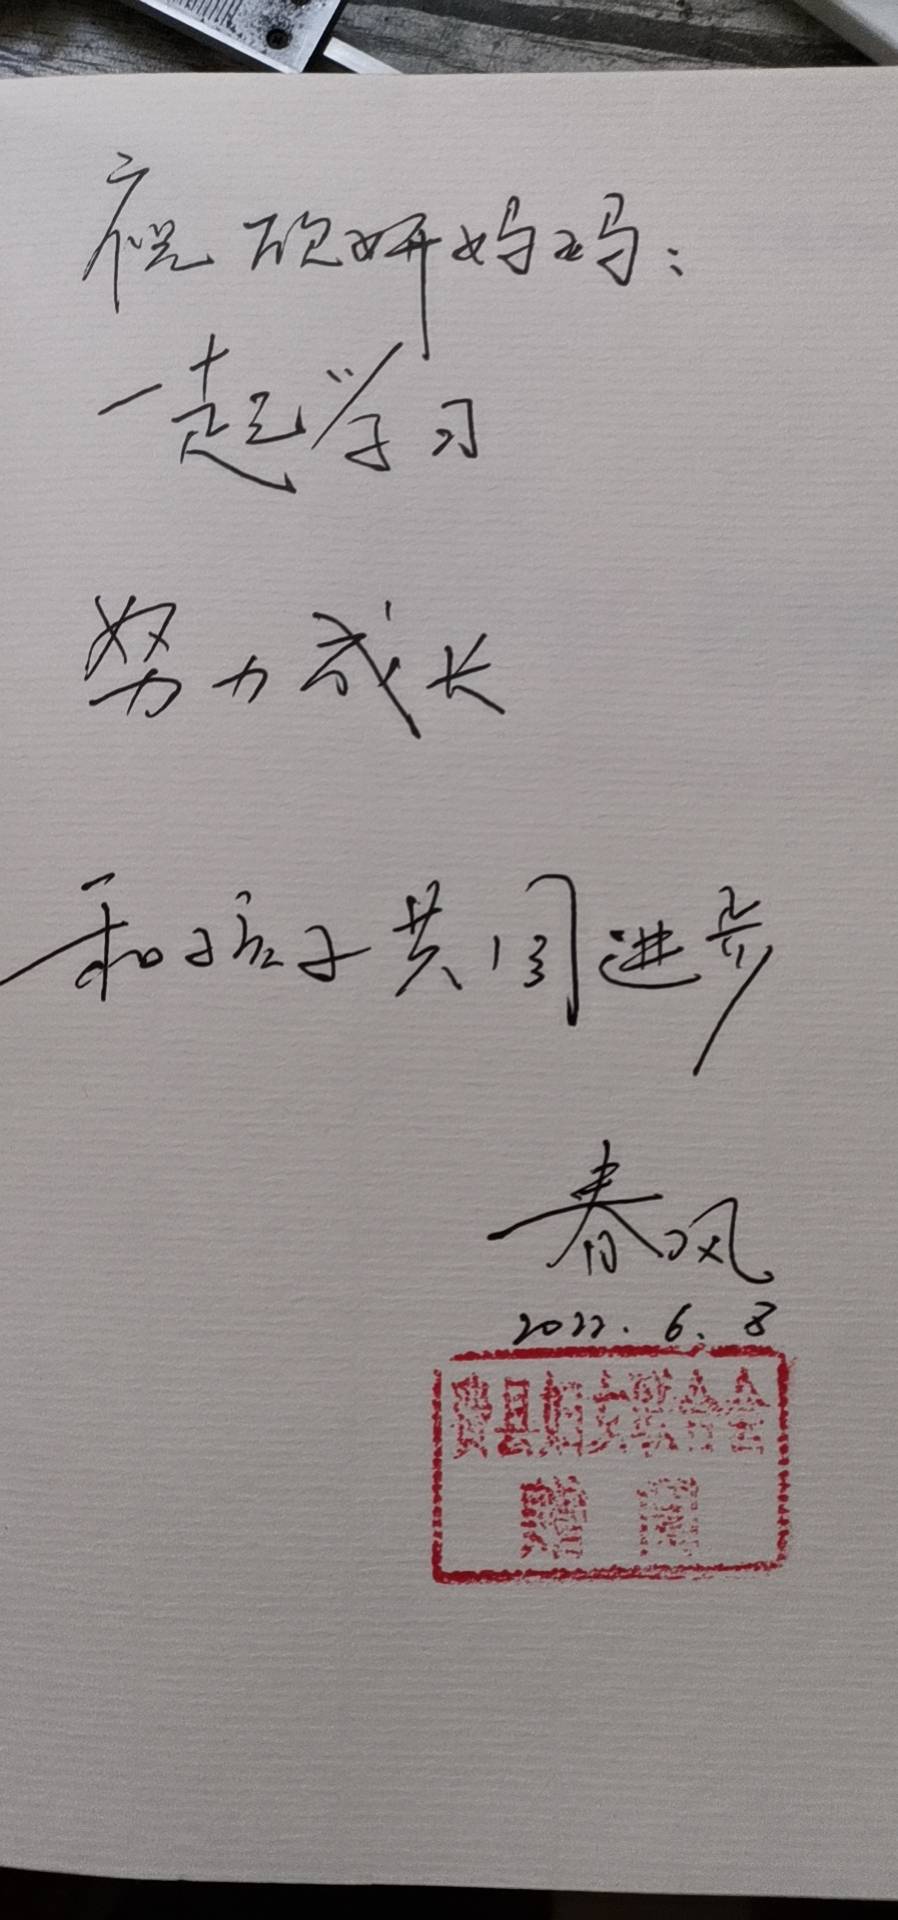 祝砚妍妈妈：
一起学习
努力成长
和孩子共同进步
春风
2022.6.8
费县妇女联合会
赠阅